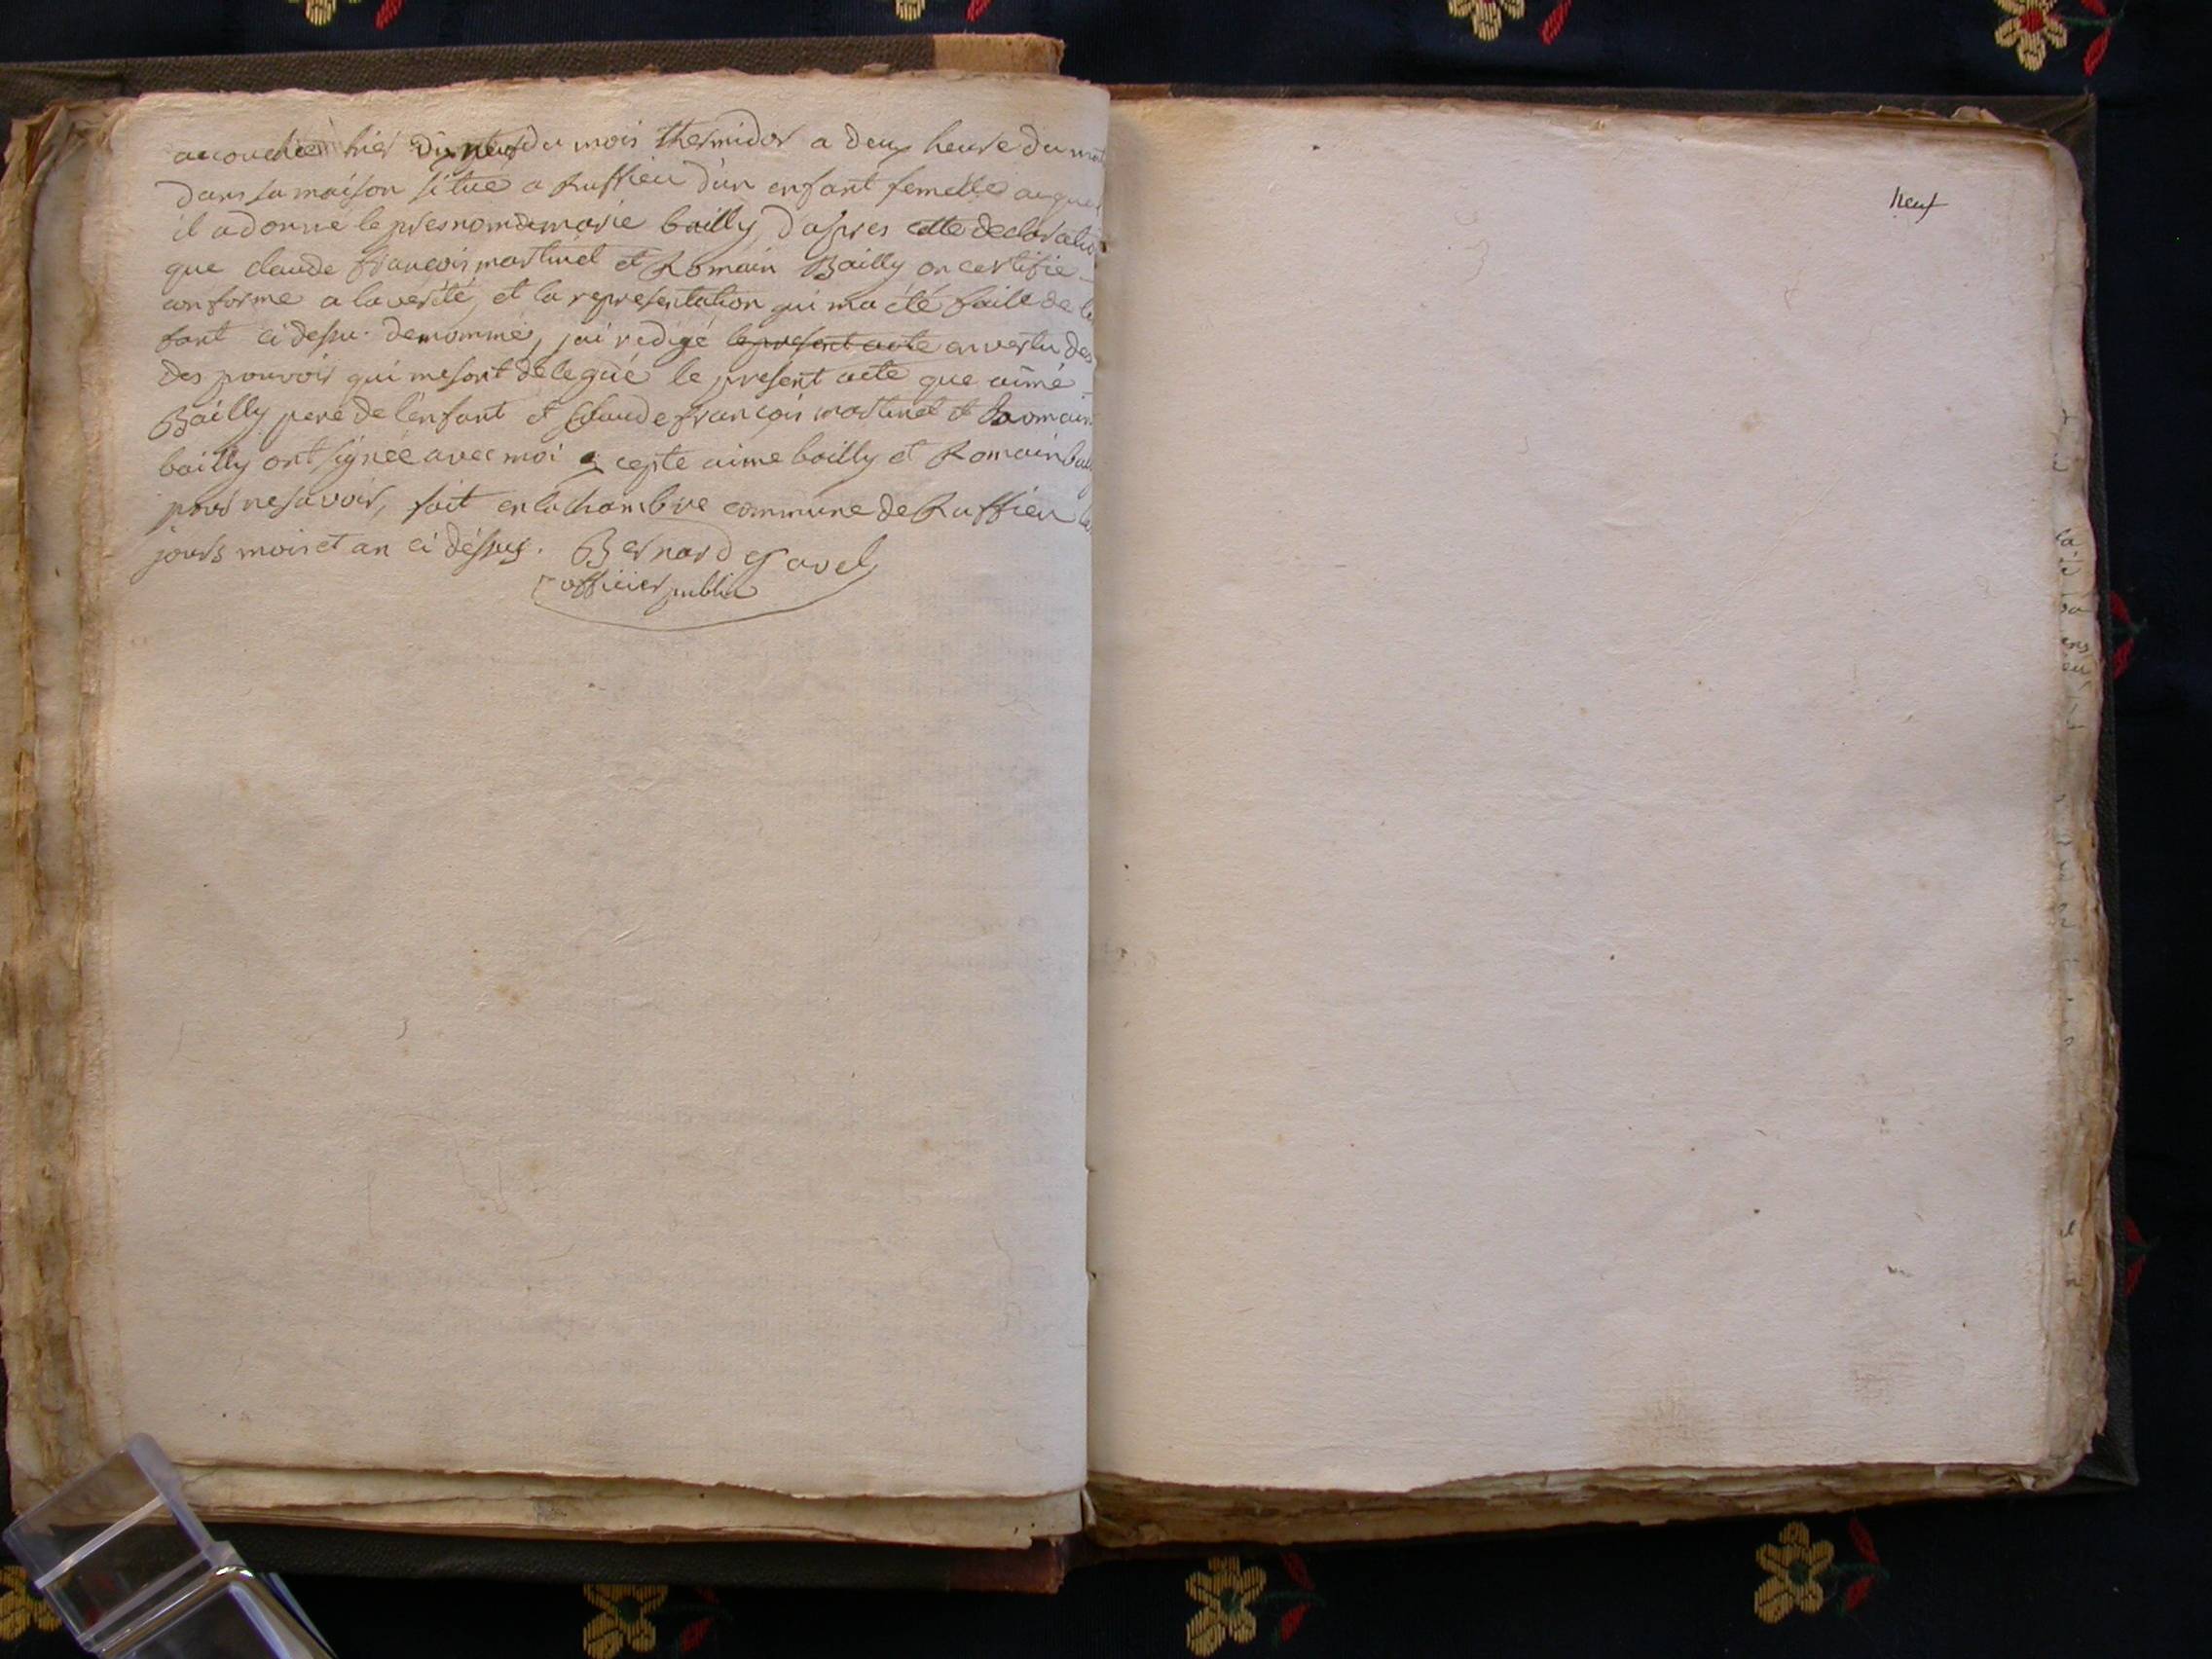 accouchée hier dix neuf du mois thermidor a deux heure du mat
dans sa maison situe a Ruffieu d'un enfant femelle auquel
il a donné le presnom de marie bailly, d'apres cette declaratio
que claude françois martinet et Romain Bailly on certifie
conforme a la verité, et la representation qui ma été faite de
fant ci dessu denommé, j'ai redigé le present acte en vertu des
des pouvoir qui me sont délégué le present acte que aimé
Bailly pere de l'enfant et Claude françois martinet et Romain
bailly ont signée avec moi excepte aime bailly et Romain bail
pour ne savoir, fait en la chambre commune de Ruffieu les
jours mois et an ci déssus. Bernard gavel
officier public
neuf